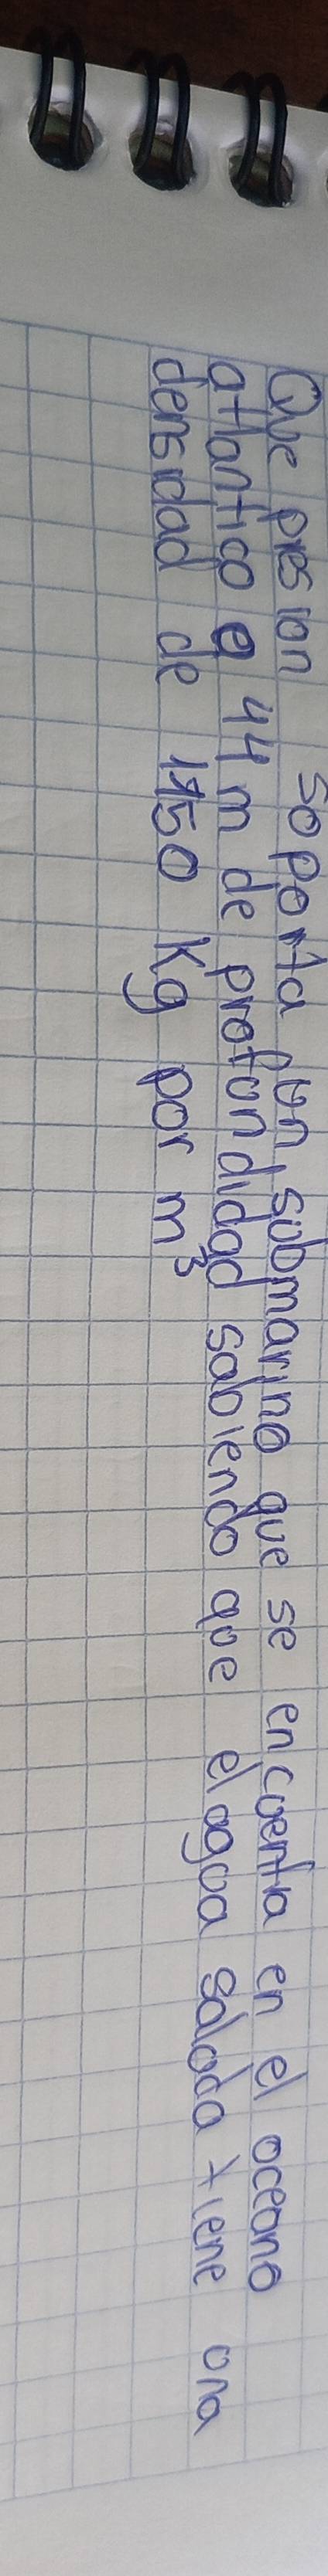 Que presion soporta un submarino que se encuentra en el oceano
atlantico a 44 m de profundidad sabiendo que el agua salada tiene una
densidad de 1150 Kg por m³